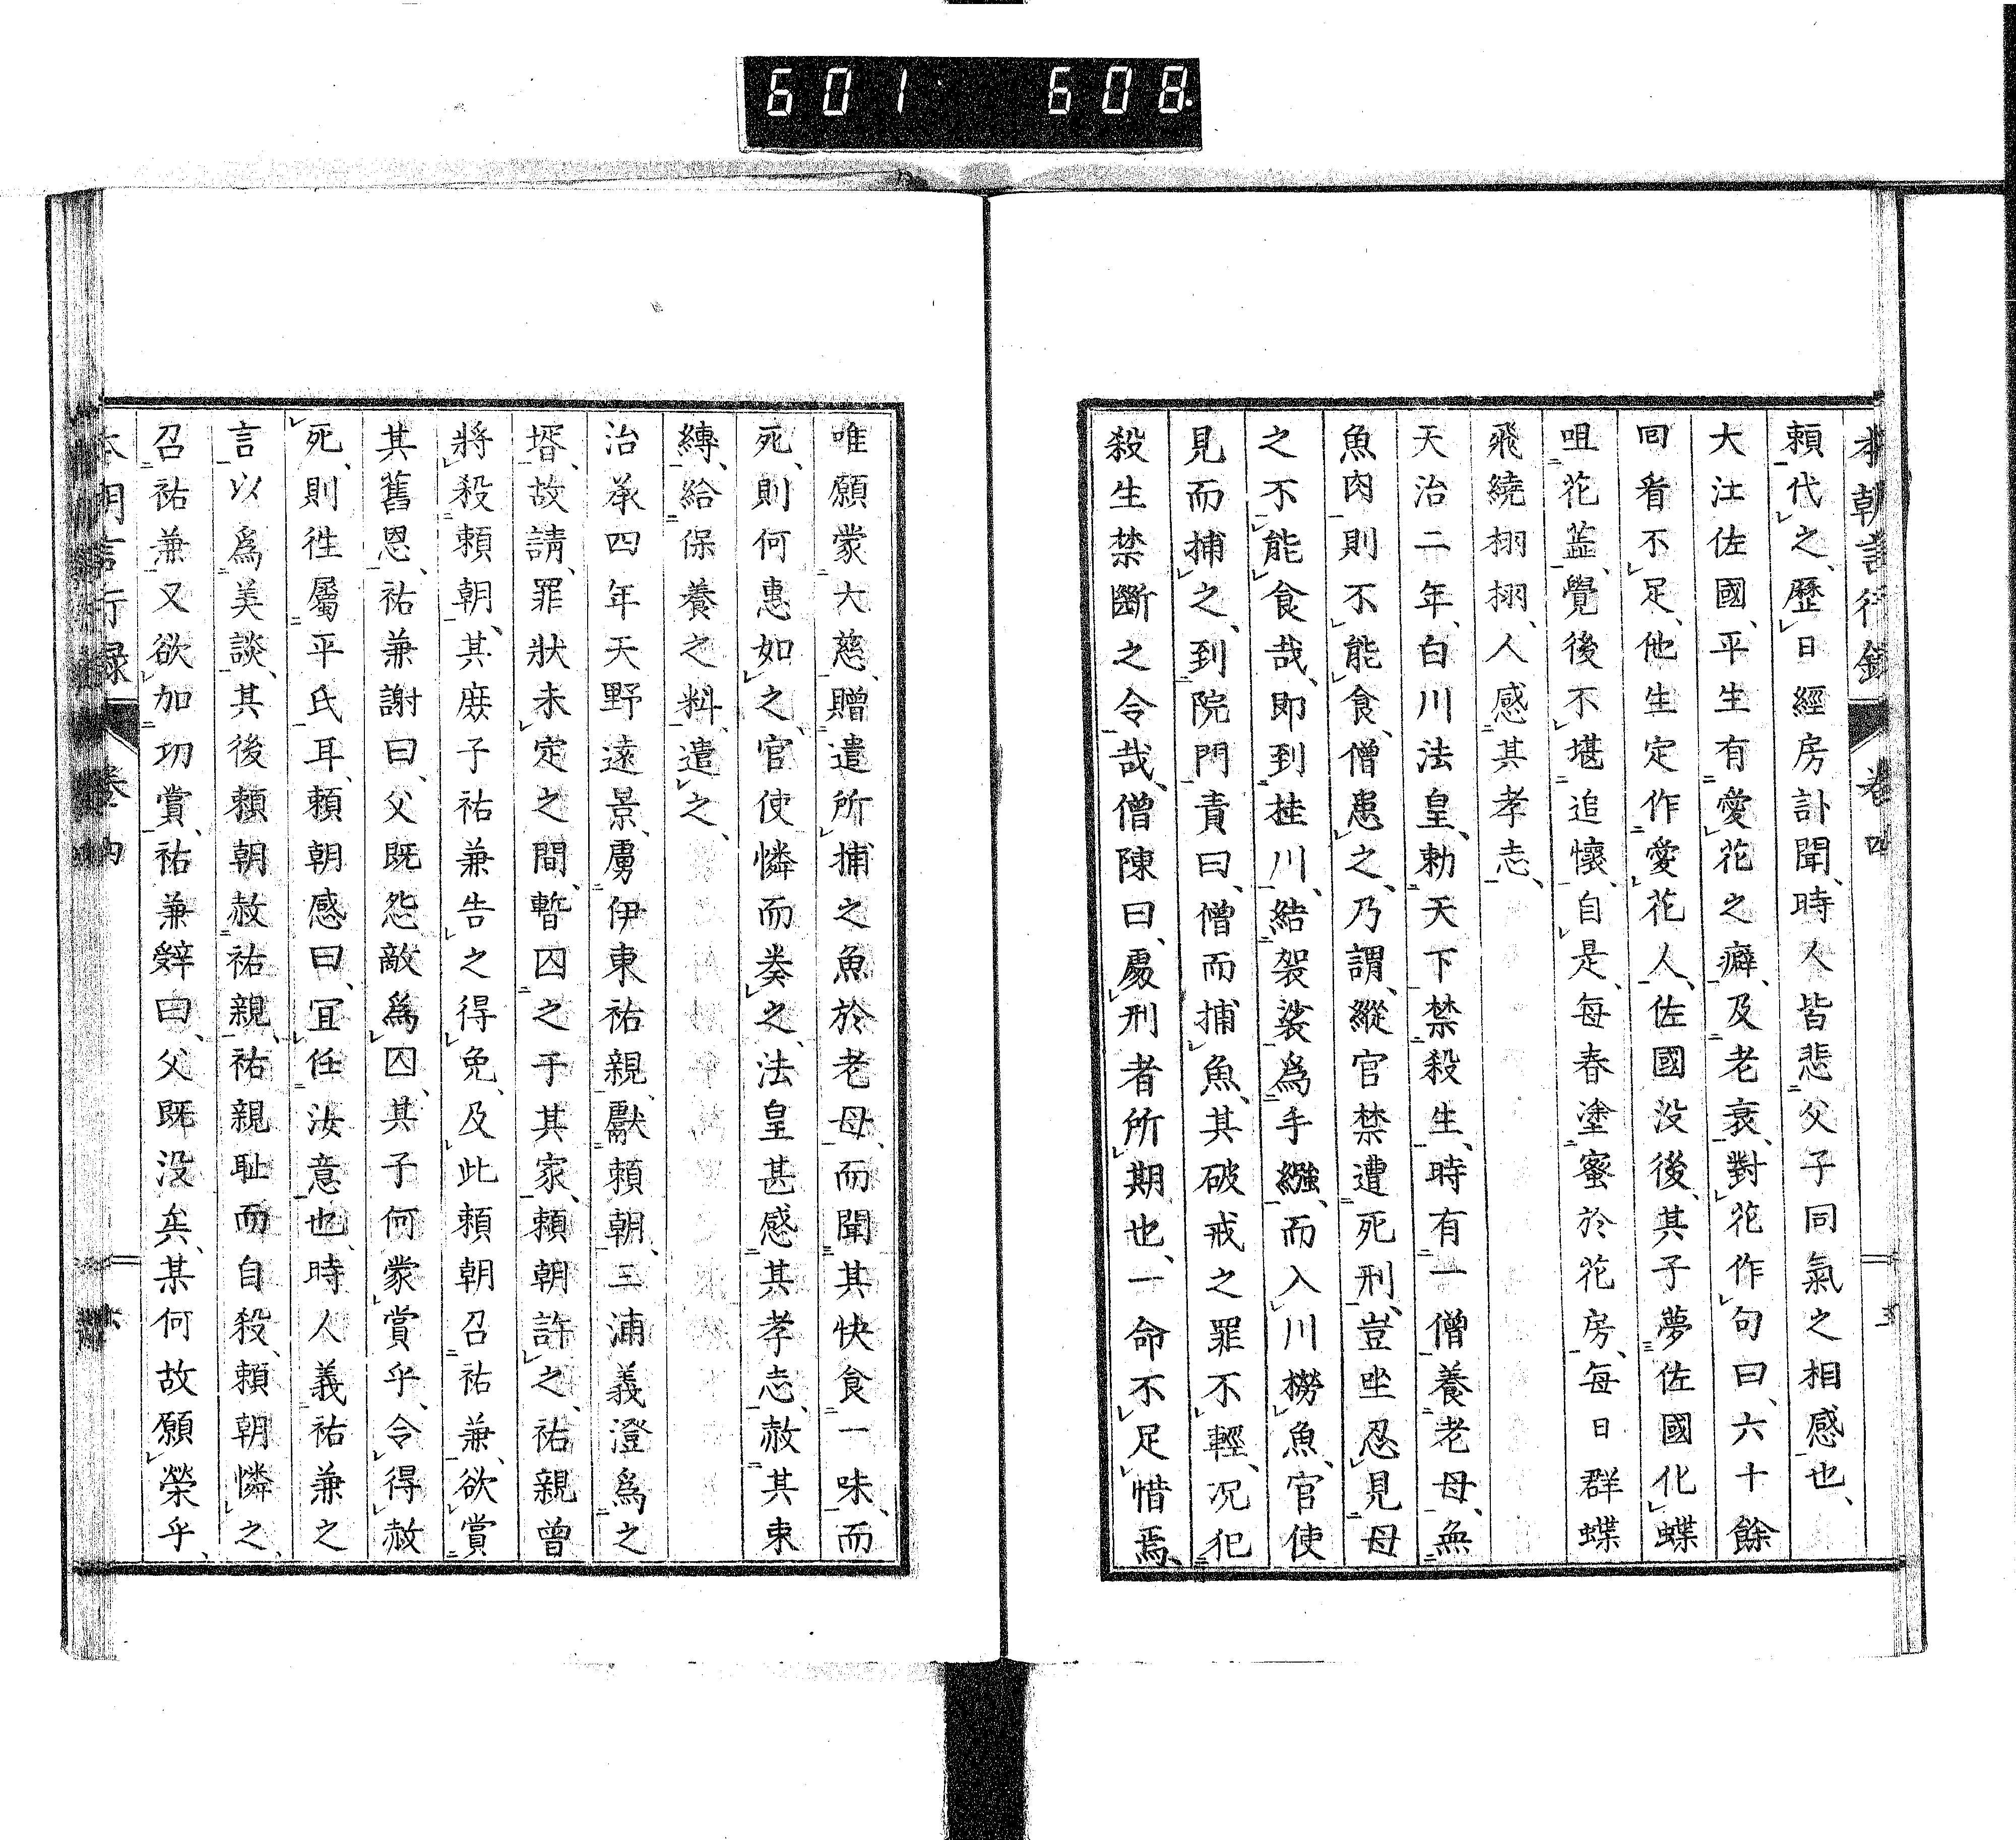 601 608
本朝言行録 卷四
頼代之、歷日經房訃聞、時人皆悲父子同氣之相感也、
大江佐國、平生有愛花之癖、及老衰、對花作句曰、六十餘
回看不足、他生定作愛花人、佐國没後、其子夢佐國化蝶
咀花蕋、覺後不堪追懷、自是、每春塗蜜於花房、每日群蝶
飛繞栩栩、人感其孝志、
天治二年、白川法皇、勅天下禁殺生、時有一僧養老母、無
魚肉則不能食、僧患之、乃謂、縱官禁遭死刑、豈坐忍見母
之不能食哉、即到桂川、結袈裟爲手繦、而入川撈魚、官使
見而捕之、到院門責曰、僧而捕魚、其破戒之罪不輕、况犯
殺生禁斷之令哉、僧陳曰、處刑者所期也、一命不足惜焉、
唯願蒙大慈、贈遣所捕之魚於老母、而聞其快食一味、而
死、則何惠如之、官使憐而奏之、法皇甚感其孝志、赦其束
縳、給保養之料、遣之、
治承四年天野遠景、虜伊東祐親、獻頼朝、三浦義澄爲之
壻、故請、罪狀未定之間、暫囚之于其家、頼朝許之、祐親曾
將殺頼朝、其庶子祐兼告之得免、及此頼朝召祐兼、欲賞
其舊恩、祐兼謝曰、父既怨敵爲囚、其子何蒙賞乎、令得赦
死、則徃屬平氏耳、頼朝感曰、冝任汝意也、時人義祐兼之
言以爲美談、其後頼朝赦祐親、祐親耻而自殺、頼朝憐之、
召祐兼又欲加功賞、祐兼辭曰、父既没矣、某何故願榮乎、
本朝言行録 卷四